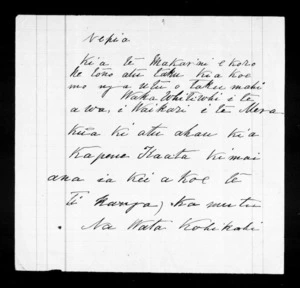 Nepia
Kia te Makarini e koro
he tono atu taku kia koe
mo nga utu o taku mahi
Waka Whitiwhi i te
awa, i Waikari i te Mera
kua ki atu ahau kia
Kapene Taata ki mai
ana ia kei a koe te
Ti kanga, Ka mutu
Na Wata Kohikohi